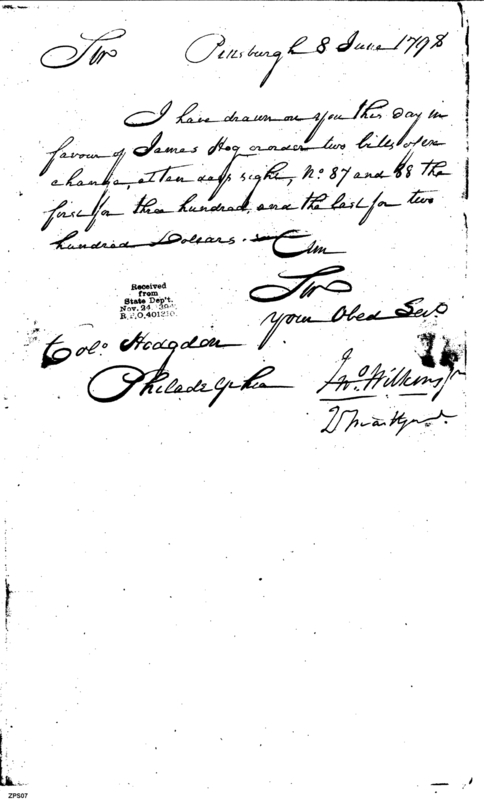 Sir Pittsburgh 8 June 1798
I have drawn on you this day in
favour of James Hog or order two bills of ex
change, at ten days sight, No. 87 and 88 the
first for three hundred, and the last for two
hundred Dollars. I am
Sir
your Obed Serv
Colo. Hodgdon
Philadelphia
Jno. Wilkins Jr
Received
from
State Dep't.
Nov. 24
ZPS07